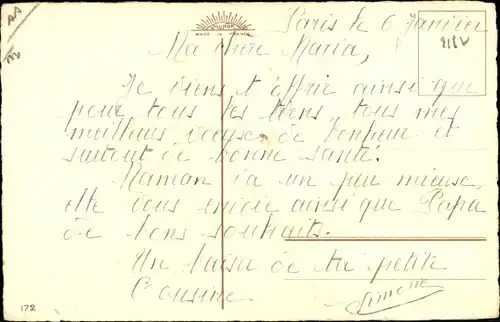 Paris le 6 Janvier
MADE IN FRANCE
Ma chère Maria,
Je viens t'offrir ainsi que
pour tous les tiens, tous mes
meilleurs voeux de bonheur et
surtout de bonne santé.
Maman va un peu mieux,
elle vous envoie ainsi que Papa
de bons souhaits.
Un baiser de ta petite
Cousine
Simone
172